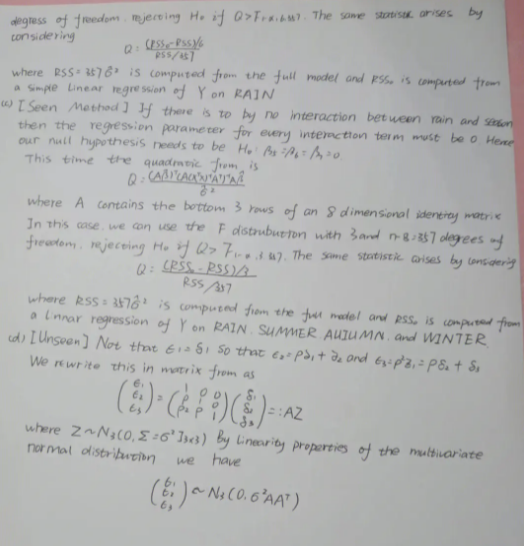 degrees of freedom, rejecting H₀ if Q > F₁₋α,6,357. The same statistic arises by
considering
Q = (RSS₀-RSS)/6
RSS/357
where RSS = 357σ̂² is computed from the full model and RSS₀ is computed from
a simple linear regression of Y on RAIN
(c) [Seen Method] If there is to by no interaction between rain and season
then the regression parameter for every interaction term must be 0 Hence
our null hypothesis needs to be H₀: β₅ = β₆ = β₇ = 0.
This time the quadratic from is
Q = (Aβ̂)ᵀ(A(XᵀX)⁻¹Aᵀ)⁻¹Aβ̂
σ̂²
where A contains the bottom 3 rows of an 8 dimensional identity matrix
In this case, we can use the F distribution with 3 and n-8=357 degrees of
freedom, rejecting H₀ if Q > F₁₋α,3,357. The same statistic arises by considering
Q = (RSS₀ - RSS)/3
RSS/357
where RSS = 357σ̂² is computed from the full model and RSS₀ is computed from
a linear regression of Y on RAIN, SUMMER, AUTUMN, and WINTER
(d) [Unseen] Not that ε₁ = δ₁ so that ε₂ = ρδ₁ + δ₂ and
We rewrite this in matrix from as
(ε₁ ε₂ ε₃) = (1 0 0 ρ 1 0 ρ² ρ 1)(δ₁ δ₂ δ₃) =: AZ
where Z ~ N₃(0, Σ = σ² I₃ₓ₃) By linearity properties of the multivariate
normal distribution we have
(ε₁ ε₂ ε₃) ~ N₃(0, σ²AAᵀ)